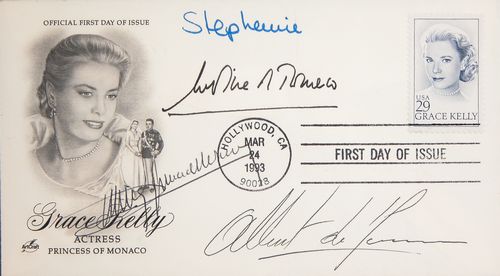 OFFICIAL FIRST DAY OF ISSUE
Stephanie
USA
29
GRACE KELLY
HOLLYWOOD, CA
MAR
24
1993
90028
FIRST DAY OF ISSUE
Grace Kelly
ACTRESS
PRINCESS OF MONACO
ArtCraft
Albert de